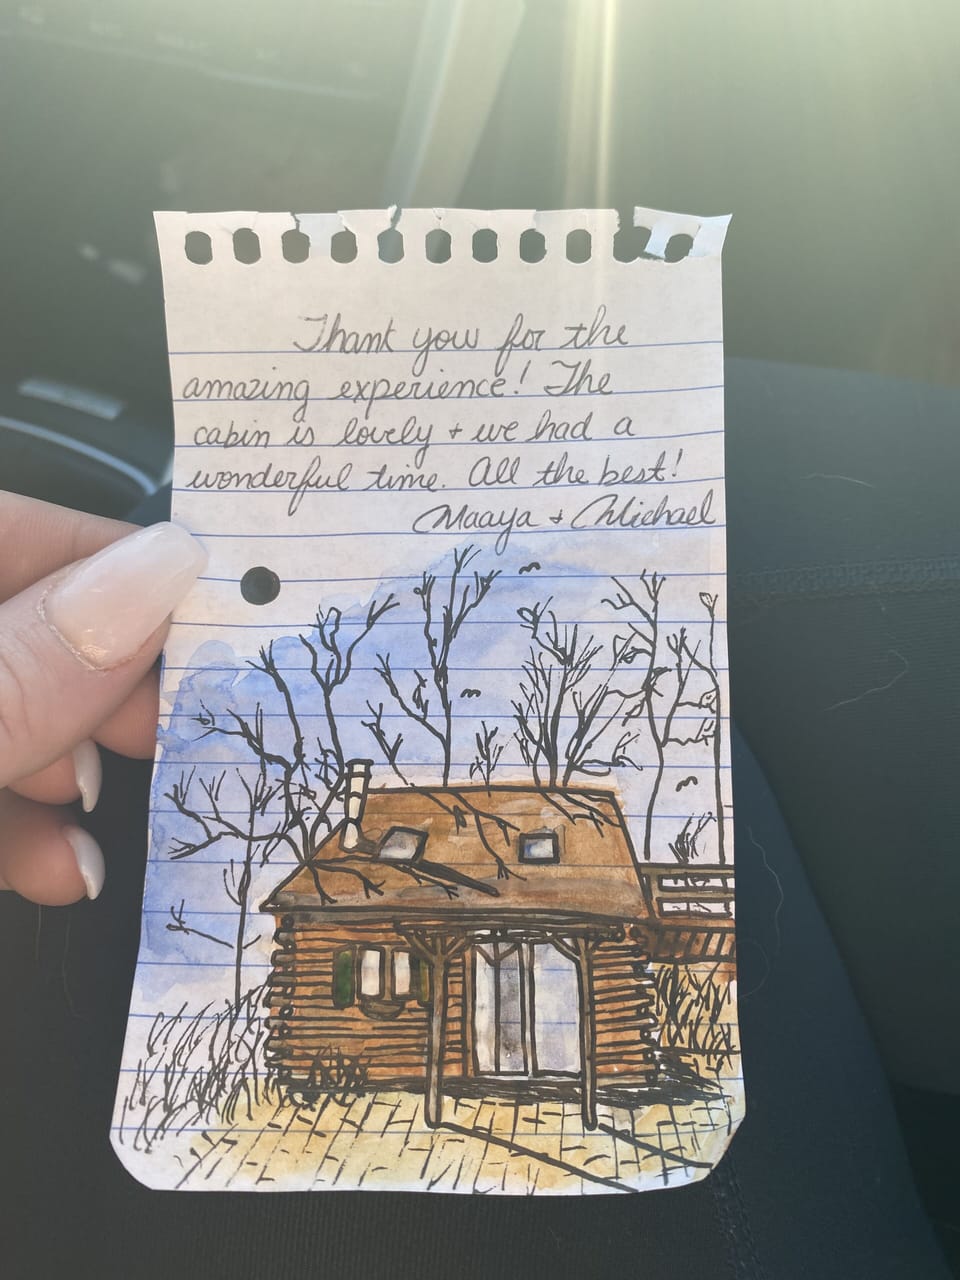 Thank you for the
amazing experience! The
cabin is lovely + we had a
wonderful time. All the best!
Maaya + Michael